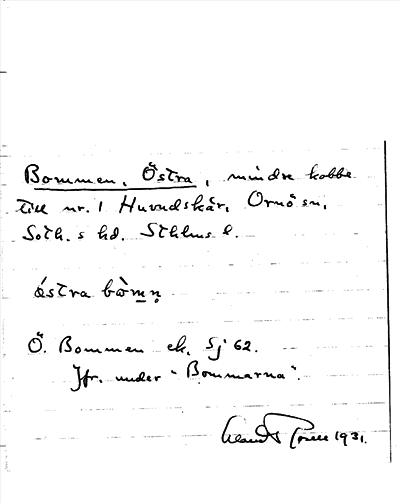 Bommen, Östra, mindre kobbe
till nr. 1 Huvudskär, Ornö sn,
Soth.s hd. Sthlms l.
östra bòmn̥
Ö. Bommen ek. Sj 62.
Jfr. under "Bommarna".
1931.